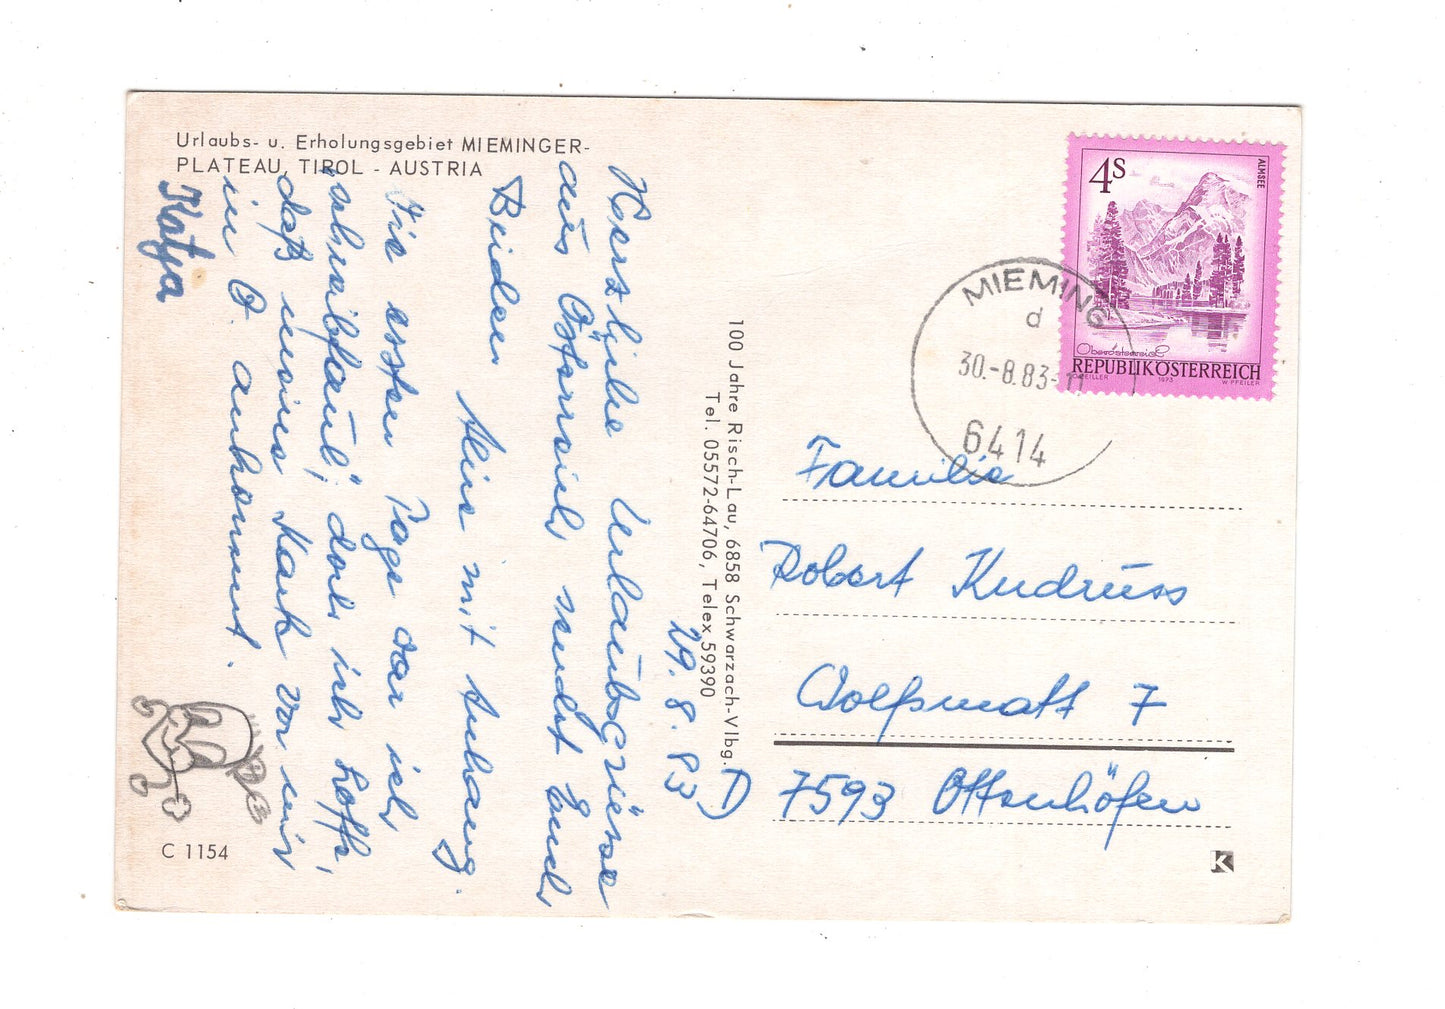 Urlaubs- u. Erholungsgebiet MIEMINGER-
PLATEAU, TIROL - AUSTRIA
29.8.83
Herzliche Urlaubsgrüsse
aus Österreich sendet Euch
Beiden Alice mit Anhang.
Die ersten Tage war ich
schreibfaul, doch ich hoffe,
daß meine Karte vor mir
in O. ankommt.
Katja
C 1154
100 Jahre Risch-Lau, 6858 Schwarzach-Vlbg.
Tel. 05572-64706, Telex 59390
4S
ALMSEE
Oberösterreich
REPUBLIK ÖSTERREICH
1973
W. PFEILER
MIEMING
d
30.-8.83-11
6414
Familie
Robert Kndruss
Wolfsmatt 7
D 7593 Ottenhöfen
K